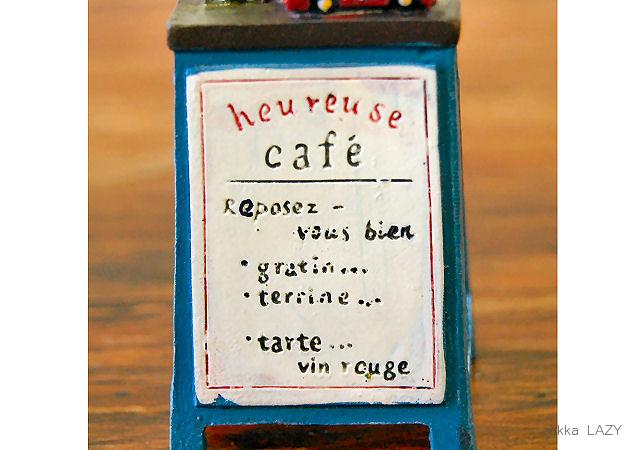 heureuse
café
Reposez -
vous bien
• gratin...
• terrine...
• tarte...
vin rouge
LAZY